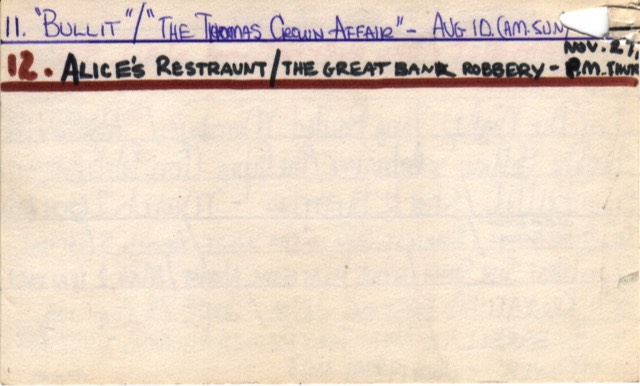 11. "BULLIT"/"THE THOMAS CROWN AFFAIR" - AUG 10. (AM. SUN)
12. ALICE'S RESTRAUNT/THE GREAT BANK ROBBERY - NOV. 27, P.M. THUR